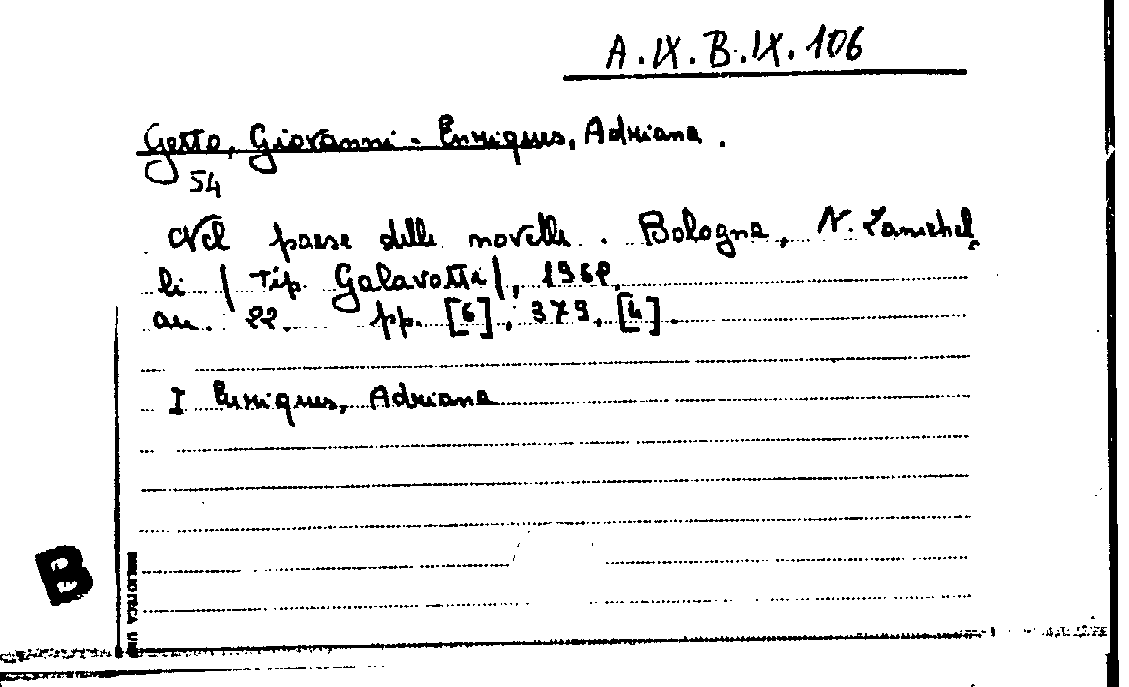 A.IX.B.IX.106
Getto, Giovanni - Enriques, Adriana.
54
Nel paese delle novelle. Bologna, N. Zanichel
li (Tip. Galavotti), 1962.
au. 22. pp. [6], 379, [4].
I Enriques, Adriana
B
BIBLIOTECA